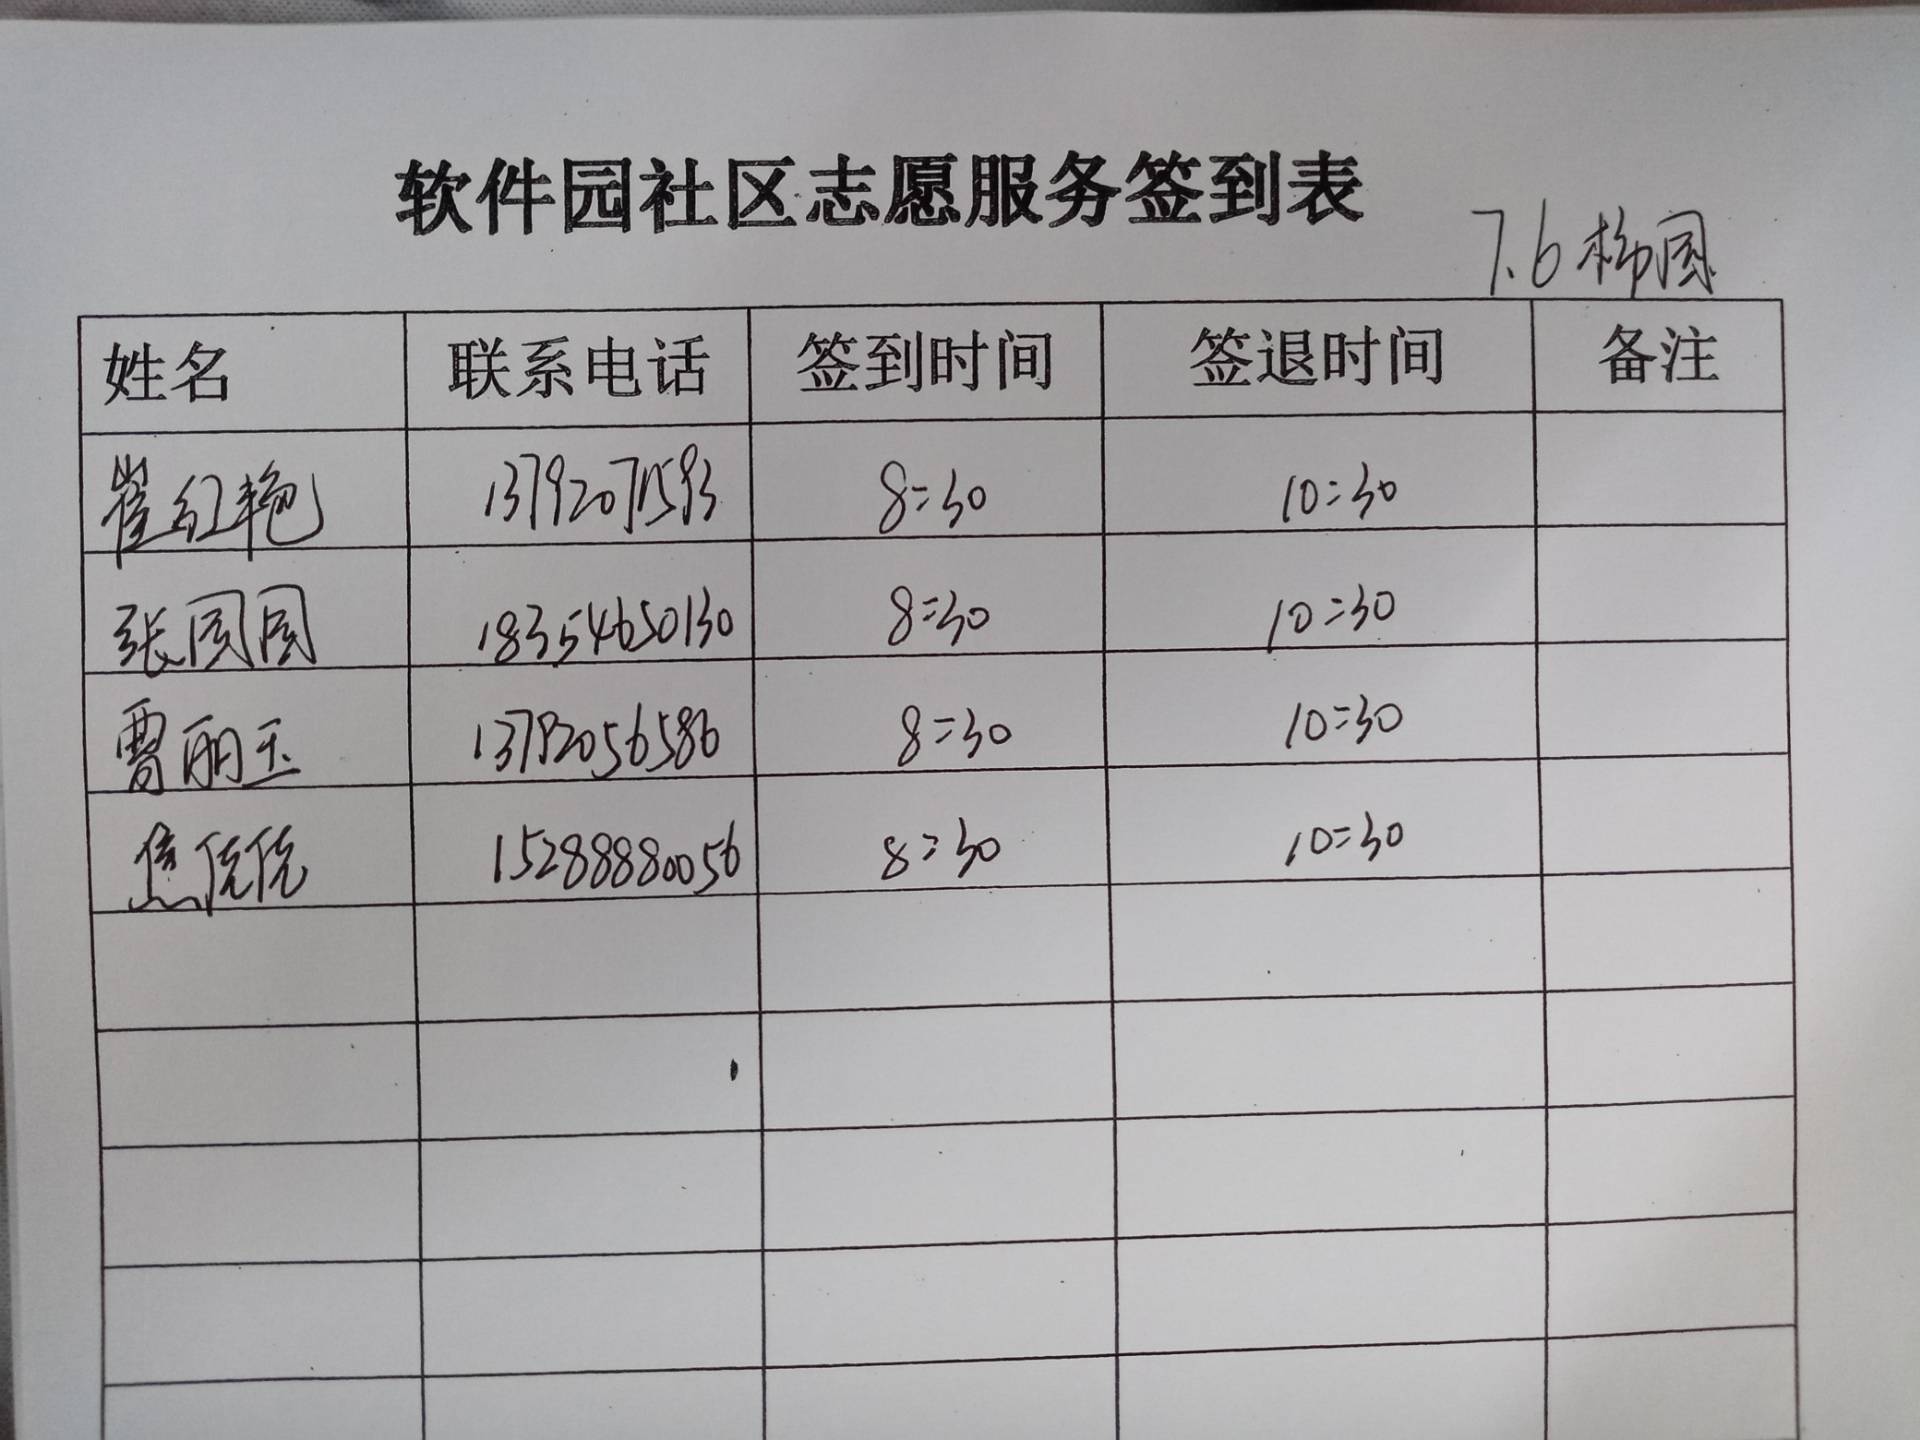 软件园社区志愿服务签到表
7.6 杨园
姓名 联系电话 签到时间 签退时间 备注
崔红艳 13792071593 8:30 10:30
张圆圆 18354650130 8:30 10:30
贾丽玉 13792056586 8:30 10:30
焦侁侁 15288880056 8:30 10:30